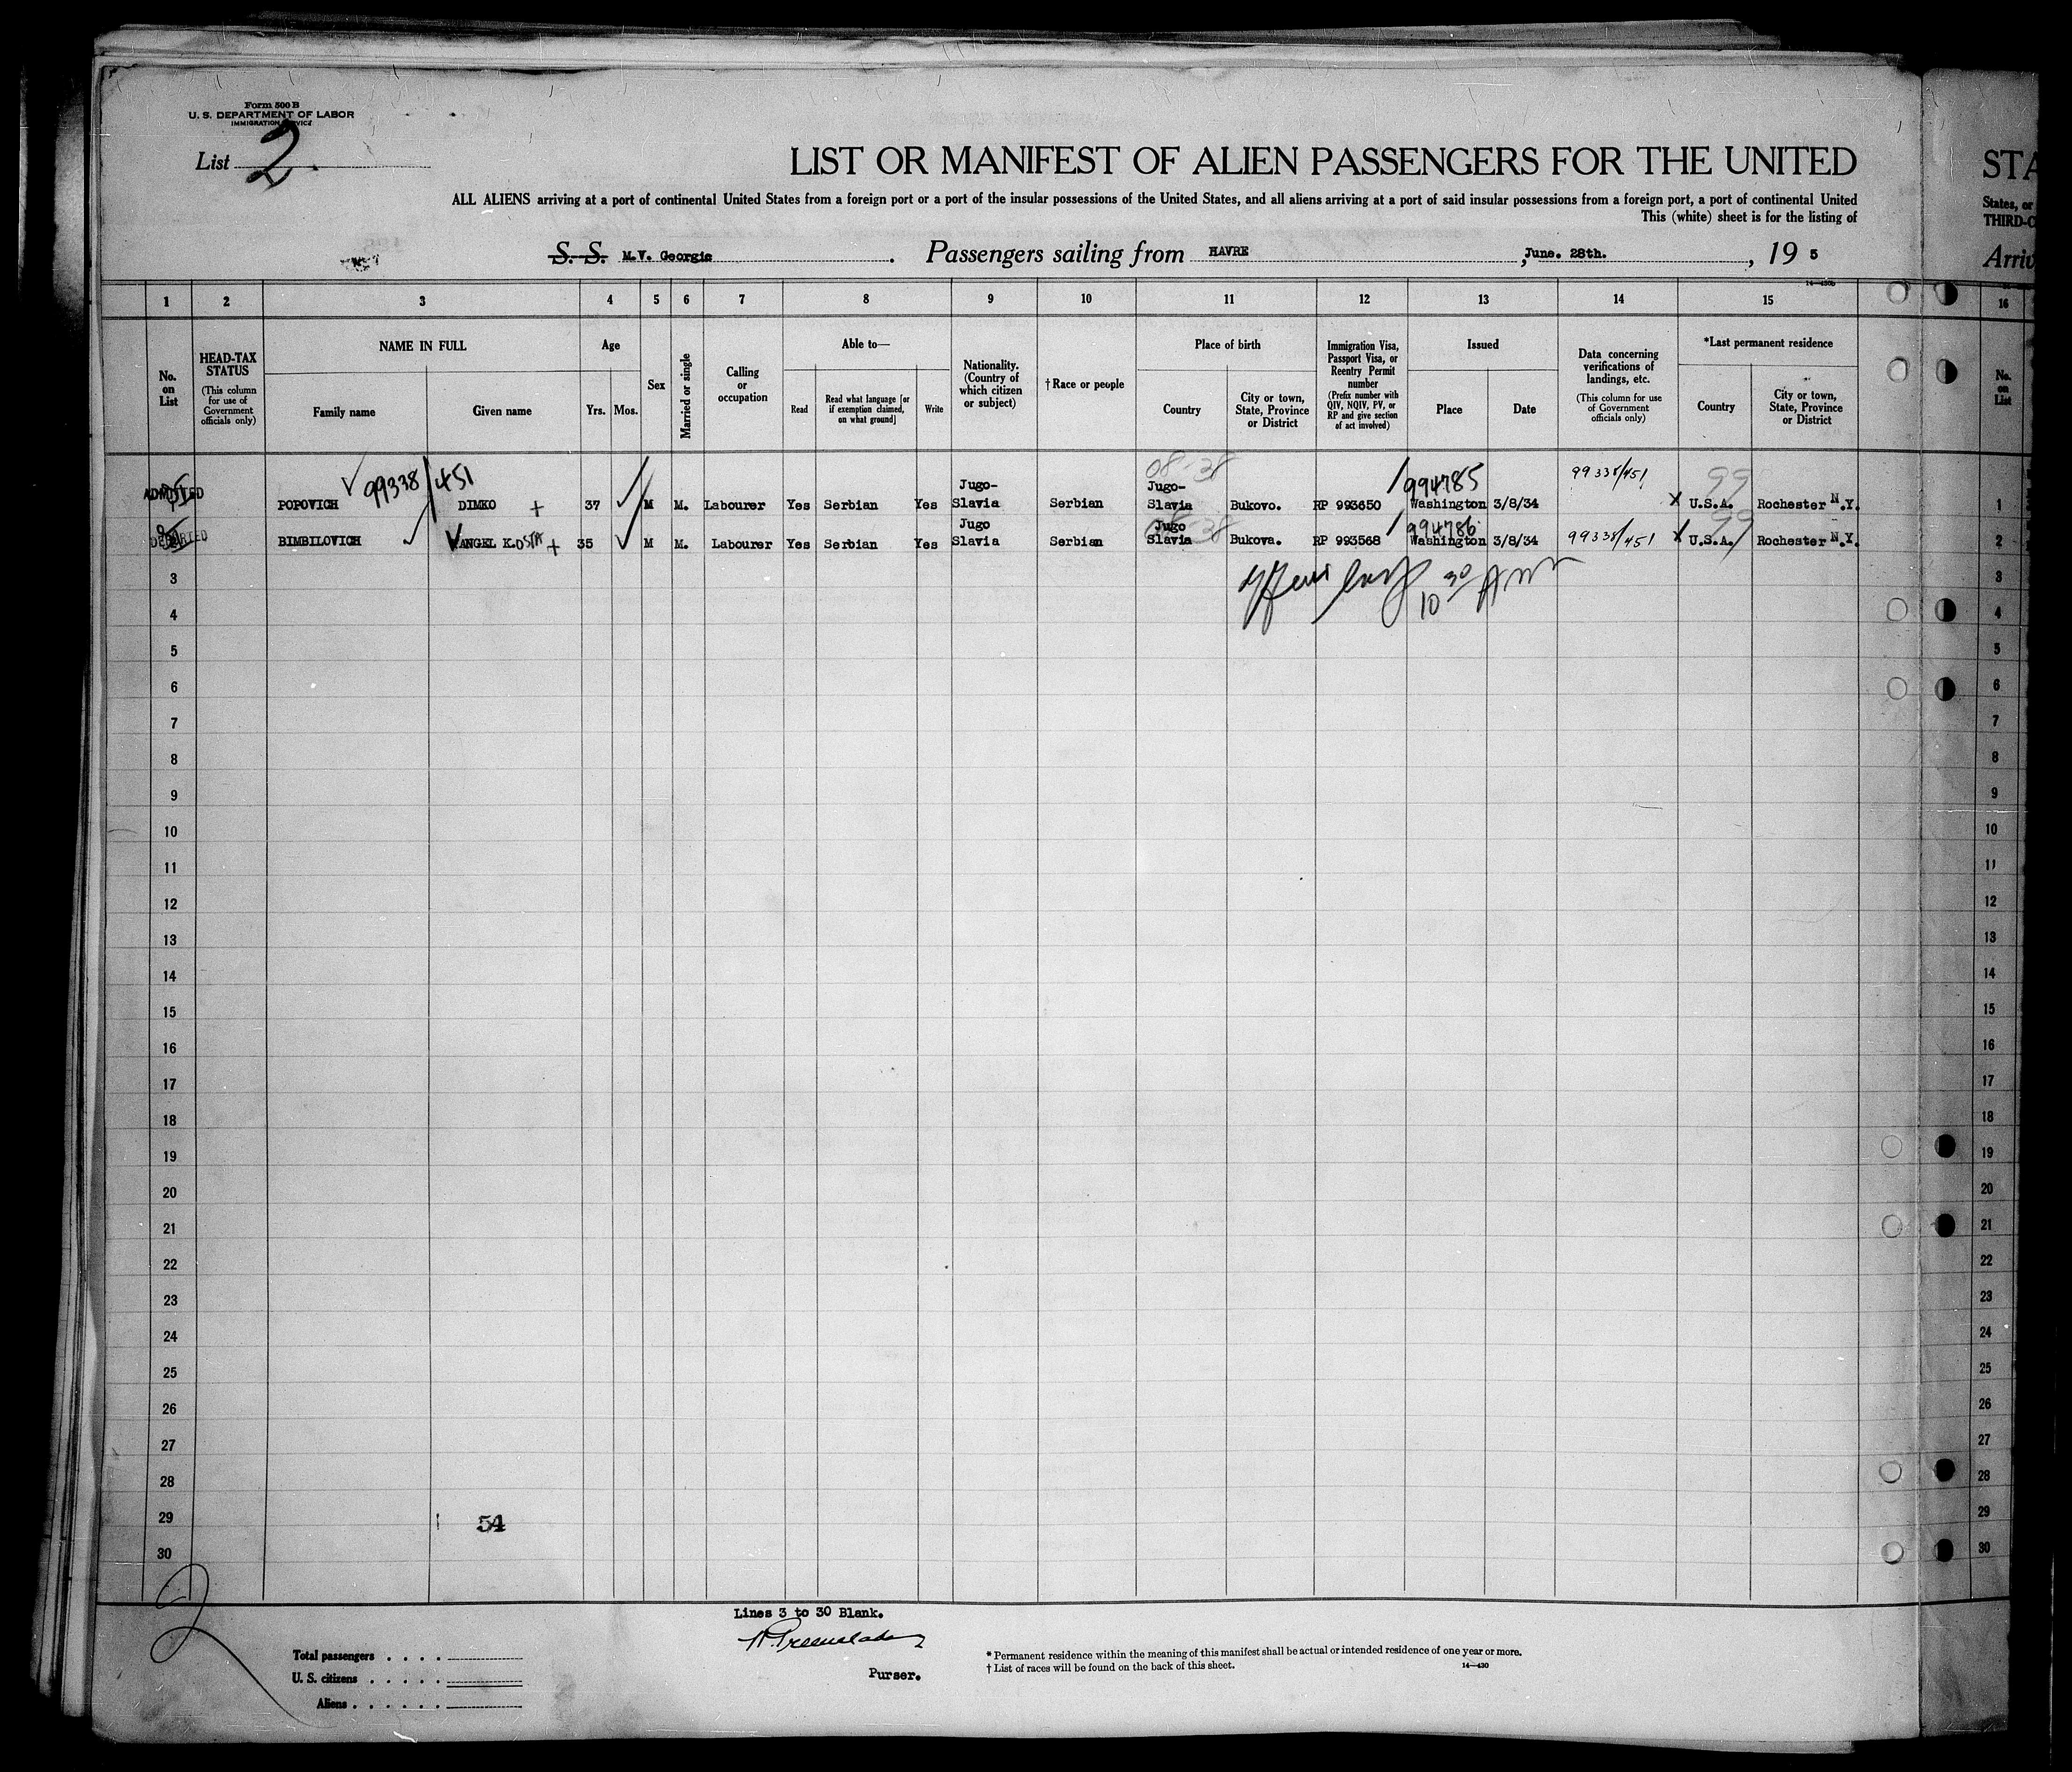 Form 500 B
U. S. DEPARTMENT OF LABOR
IMMIGRATION SERVICE
List 2.
LIST OR MANIFEST OF ALIEN PASSENGERS FOR THE UNITED
STA
ALL ALIENS arriving at a port of continental United States from a foreign port or a port of the insular possessions of the United States, and all aliens arriving at a port of said insular possessions from a foreign port, a port of continental United
States, or
This (white) sheet is for the listing of
THIRD-C
S. S. M.V. Georgic. Passengers sailing from HAVRE, June. 28th., 19 5
Arriv
14—430b
1 2 3 4 5 6 7 8 9 10 11 12 13 14 15 16
No. on List
HEAD-TAX STATUS (This column for use of Government officials only)
NAME IN FULL
Family name
Given name
Age
Yrs.
Mos.
Sex
Married or single
Calling or occupation
Able to—
Read
Read what language [or if exemption claimed, on what ground]
Write
Nationality. (Country of which citizen or subject)
† Race or people
Place of birth
Country
City or town, State, Province or District
Immigration Visa, Passport Visa, or Reentry Permit number (Prefix number with QIV, NQIV, PV, or RP and give section of act involved)
Issued
Place
Date
Data concerning verifications of landings, etc. (This column for use of Government officials only)
*Last permanent residence
Country
City or town, State, Province or District
No. on List
99338/451 08-38 994785 99338/451 99
ADMITTED POPOVICH DIMKO + 37 M M. Labourer Yes Serbian Yes Jugo-Slavia Serbian Jugo-Slavia Bukovo. RP 993650 Washington 3/8/34 X U.S.A. Rochester N.Y. 1
08-38 994786 99
DEPARTED BIMBILOVICH VANGEL KOSTA + 35 M M. Labourer Yes Serbian Yes Jugo Slavia Serbian Jugo Slavia Bukova. RP 993568 Washington 3/8/34 99338/451 X U.S.A. Rochester N.Y. 2
3 10 30 AM 3
4 4
5 5
6 6
7 7
8 8
9 9
10 10
11 11
12 12
13 13
14 14
15 15
16 16
17 17
18 18
19 19
20 20
21 21
22 22
23 23
24 24
25 25
26 26
27 27
28 28
29 54 29
30 30
2
Lines 3 to 30 Blank.
Purser.
Total passengers . . . .
U. S. citizens . . . . .
Aliens . . . . . .
* Permanent residence within the meaning of this manifest shall be actual or intended residence of one year or more.
† List of races will be found on the back of this sheet.
14—430